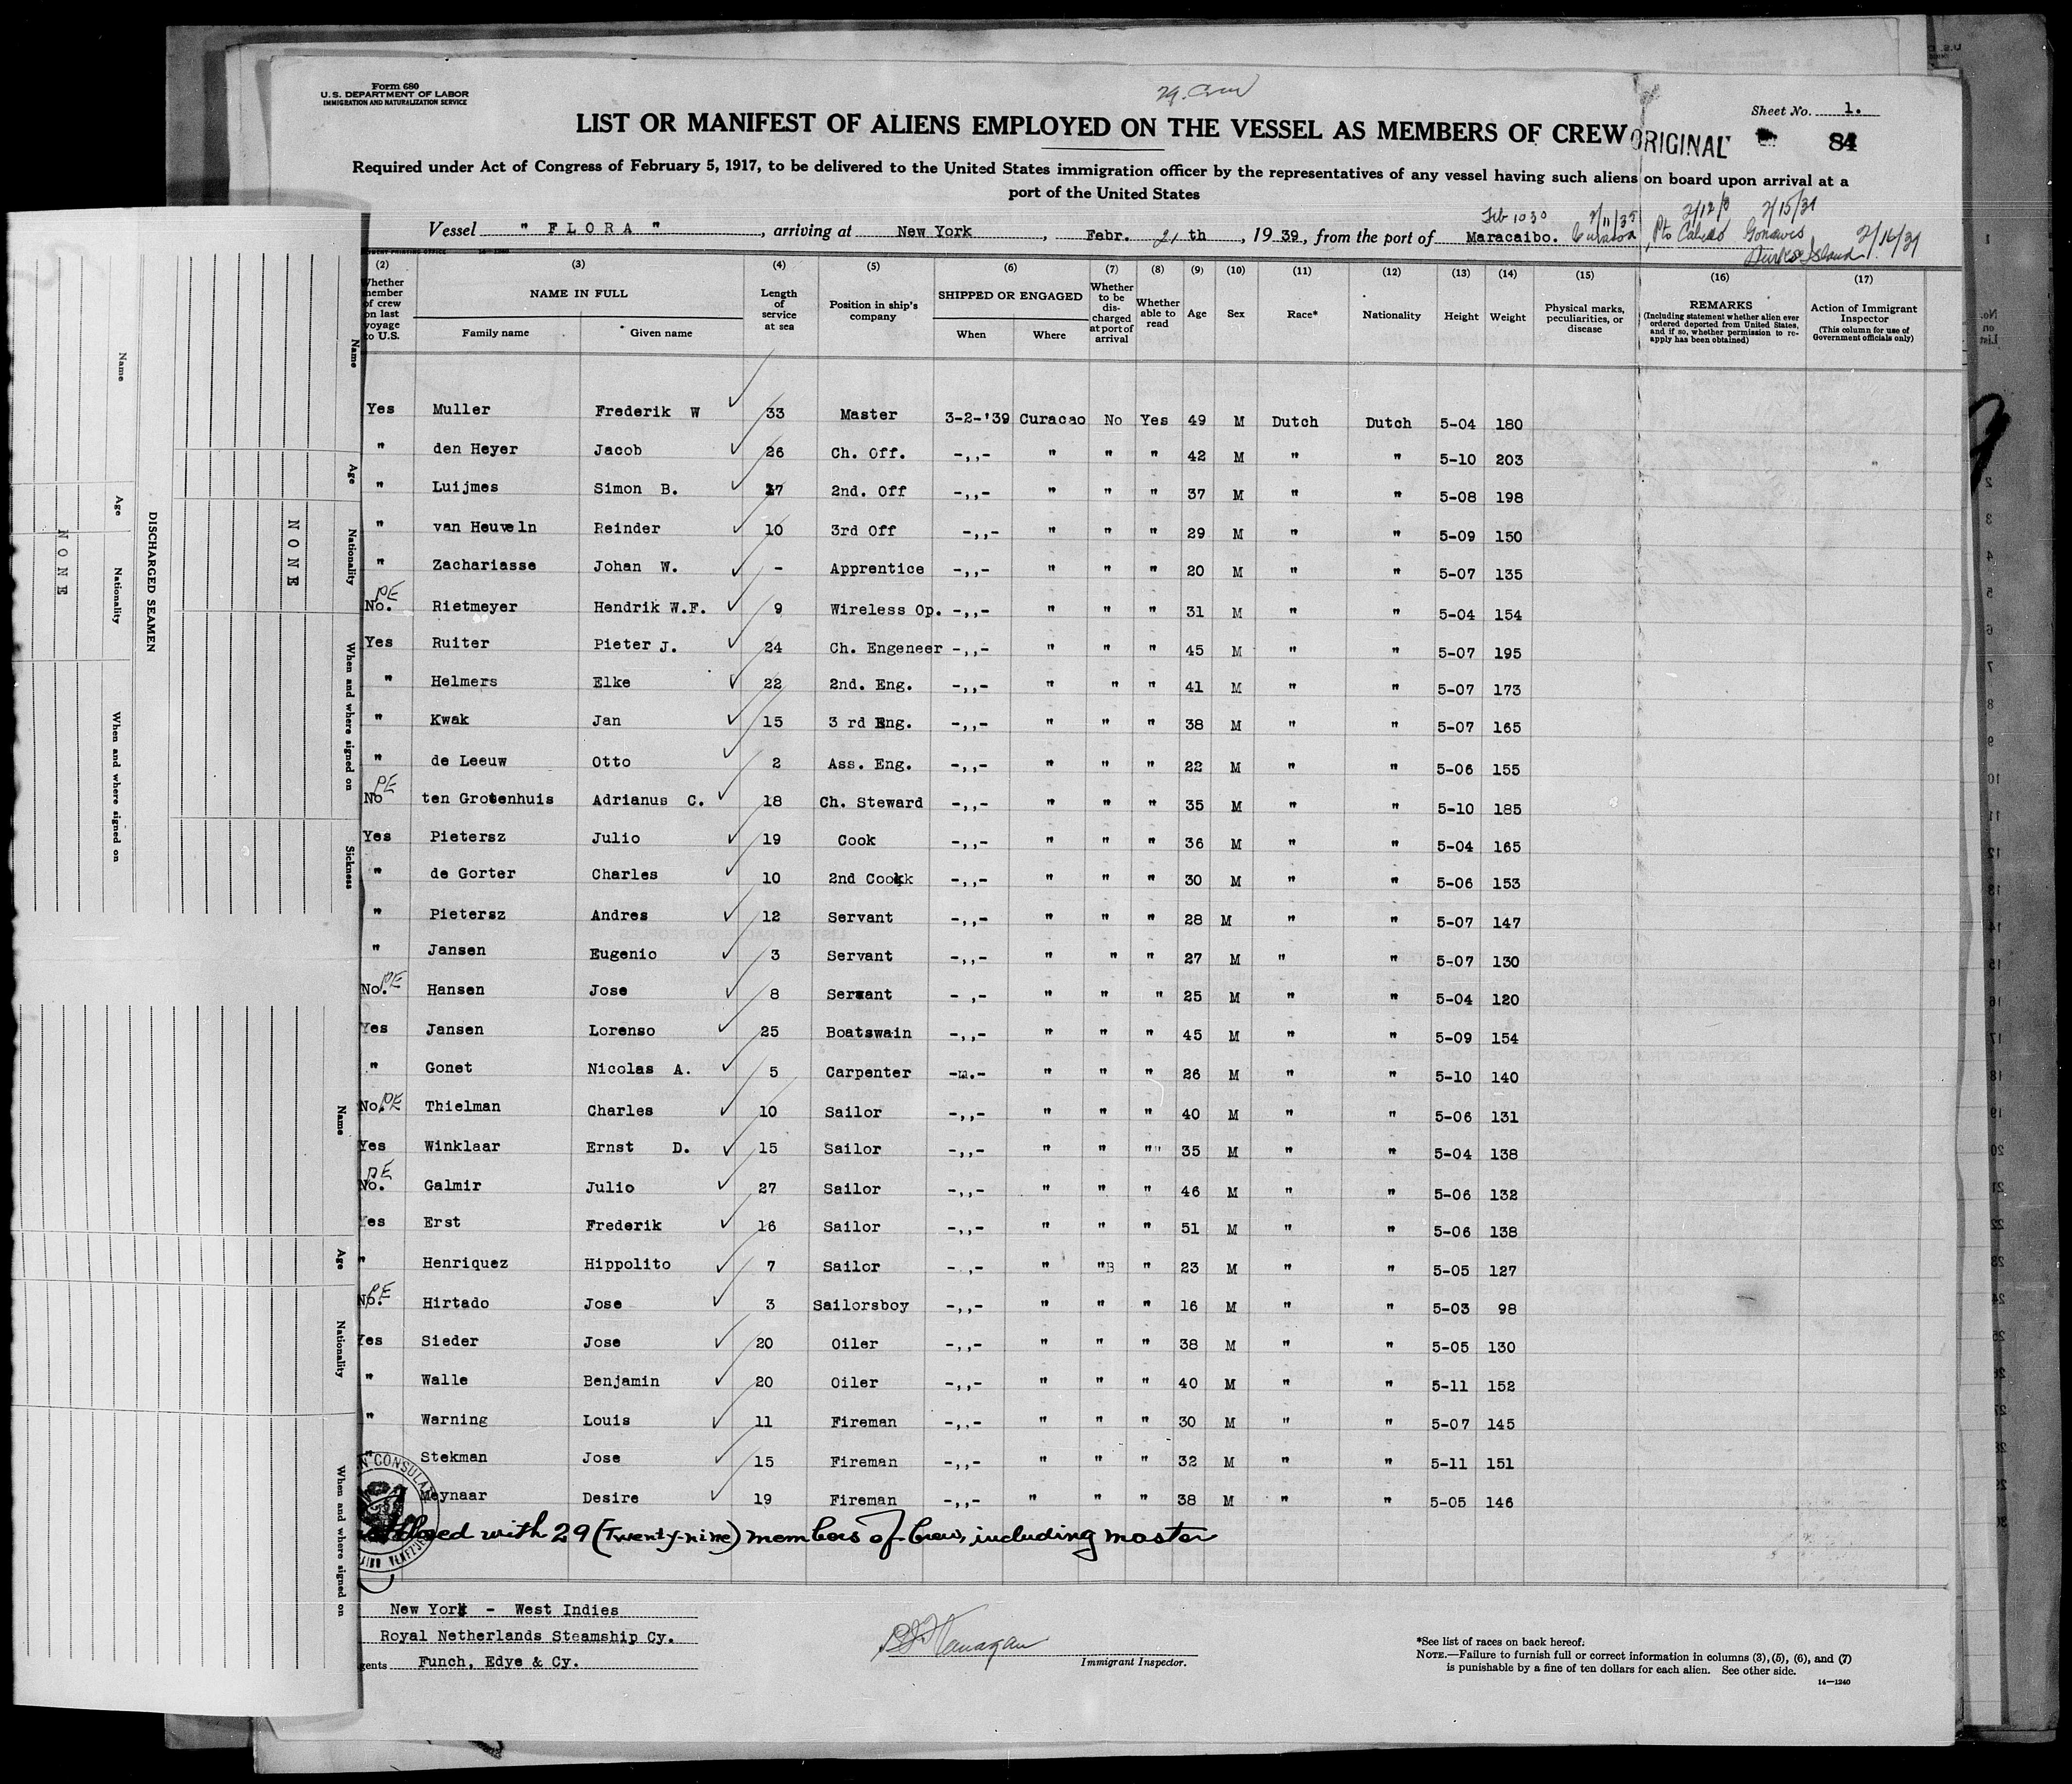 Form 680
U.S. DEPARTMENT OF LABOR
IMMIGRATION AND NATURALIZATION SERVICE
29. Crew
Sheet No. 1.
LIST OR MANIFEST OF ALIENS EMPLOYED ON THE VESSEL AS MEMBERS OF CREW
ORIGINAL
84
Required under Act of Congress of February 5, 1917, to be delivered to the United States immigration officer by the representatives of any vessel having such aliens on board upon arrival at a
port of the United States
Vessel " FLORA ", arriving at New York, Febr. 21 th, 19 39, from the port of Maracaibo. Curacoa, Pto Cabello Gonaives
Feb 10 39 2/11/39 2/12/39 2/15/39
Turks Island 2/16/39
(2) (3) (4) (5) (6) (7) (8) (9) (10) (11) (12) (13) (14) (15) (16) (17)
Whether member of crew on last voyage to U.S.
NAME IN FULL
Family name Given name
Length of service at sea
Position in ship's company
SHIPPED OR ENGAGED
When Where
Whether to be discharged at port of arrival
Whether able to read
Age
Sex
Race*
Nationality
Height
Weight
Physical marks, peculiarities, or disease
REMARKS
(Including statement whether alien ever ordered deported from United States, and if so, whether permission to re-apply has been obtained)
Action of Immigrant Inspector
(This column for use of Government officials only)
Yes Muller Frederik W 33 Master 3-2-'39 Curacao No Yes 49 M Dutch Dutch 5-04 180
" den Heyer Jacob 26 Ch. Off. -,,- " " " 42 M " " 5-10 203
" Luijmes Simon B. 17 2nd. Off -,,- " " " 37 M " " 5-08 198
" van Heuveln Reinder 10 3rd Off -,,- " " " 29 M " " 5-09 150
" Zachariasse Johan W. - Apprentice -,,- " " " 20 M " " 5-07 135
No. PE Rietmeyer Hendrik W.F. 9 Wireless Op. -,,- " " " 31 M " " 5-04 154
Yes Ruiter Pieter J. 24 Ch. Engeneer -,,- " " " 45 M " " 5-07 195
" Helmers Elke 22 2nd. Eng. -,,- " " " 41 M " " 5-07 173
" Kwak Jan 15 3 rd Eng. -,,- " " " 38 M " " 5-07 165
" de Leeuw Otto 2 Ass. Eng. -,,- " " " 22 M " " 5-06 155
No PE ten Grotenhuis Adrianus C. 18 Ch. Steward -,,- " " " 35 M " " 5-10 185
Yes Pietersz Julio 19 Cook -,,- " " " 36 M " " 5-04 165
" de Gorter Charles 10 2nd Cook -,,- " " " 30 M " " 5-06 153
" Pietersz Andres 12 Servant -,,- " " " 28 M " " 5-07 147
" Jansen Eugenio 3 Servant -,,- " " " 27 M " " 5-07 130
No. PE Hansen Jose 8 Servant - ,- " " " 25 M " " 5-04 120
Yes Jansen Lorenso 25 Boatswain -,,- " " " 45 M " " 5-09 154
" Gonet Nicolas A. 5 Carpenter -".- " " " 26 M " " 5-10 140
No. PE Thielman Charles 10 Sailor -,,- " " " 40 M " " 5-06 131
Yes Winklaar Ernst D. 15 Sailor -,,- " " " 35 M " " 5-04 138
No. PE Galmir Julio 27 Sailor -,,- " " " 46 M " " 5-06 132
Yes Erst Frederik 16 Sailor -,,- " " " 51 M " " 5-06 138
" Henriquez Hippolito 7 Sailor -.,- " " " 23 M " " 5-05 127
No. PE Hirtado Jose 3 Sailorsboy -,,- " " " 16 M " " 5-03 98
Yes Sieder Jose 20 Oiler -,,- " " " 38 M " " 5-05 130
" Walle Benjamin 20 Oiler -,,- " " " 40 M " " 5-11 152
" Warning Louis 11 Fireman -,,- " " " 30 M " " 5-07 145
" Stekman Jose 15 Fireman -,,- " " " 32 M " " 5-11 151
Meynaar Desire 19 Fireman -,,- " " " 38 M " " 5-05 146
closed with 29 (Twenty-nine) members of crew, including master
New York - West Indies
Royal Netherlands Steamship Cy.
gents Funch, Edye & Cy.
Immigrant Inspector.
*See list of races on back hereof.
NOTE.—Failure to furnish full or correct information in columns (3), (5), (6), and (7)
is punishable by a fine of ten dollars for each alien. See other side.
14—1240
DISCHARGED SEAMEN
Name Age Nationality When and where signed on
NONE
NONE
Name Age Nationality When and where signed on Sickness
Name Age Nationality When and where signed on